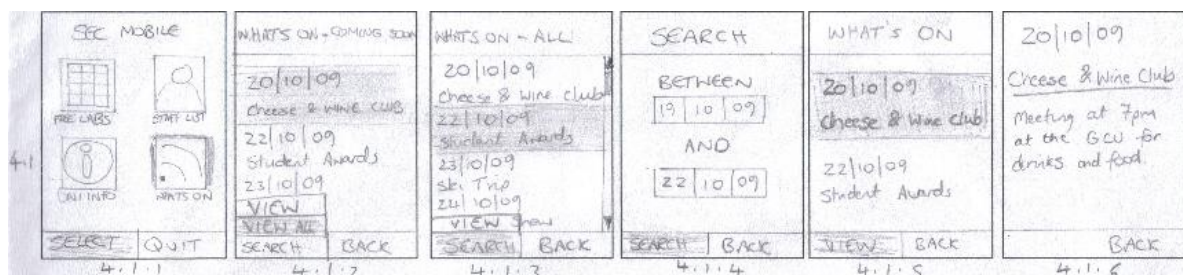 4.1
SEC MOBILE
PRE LABS
STAFF LIST
UNI INFO
WATS ON
SELECT
QUIT
4.1.1
WHAT'S ON - COMING SOON
20/10/09
Cheese & WINE CLUB
22/10/09
Student Awards
23/10/09
VIEW
VIEW ALL
SEARCH
BACK
4.1.2
WHATS ON - ALL
20/10/09
Cheese & Wine Club
22/10/09
Student Awards
23/10/09
Ski Trip
24/10/09
VIEW Show
SEARCH
BACK
4.1.3
SEARCH
BETWEEN
19 10 09
AND
22 10 09
SEARCH
BACK
4.1.4
WHAT'S ON
20/10/09
Cheese & Wine Club
22/10/09
Student Awards
VIEW
BACK
4.1.5
20/10/09
Cheese & Wine Club
Meeting at 7pm
at the GCU for
drinks and food.
BACK
4.1.6